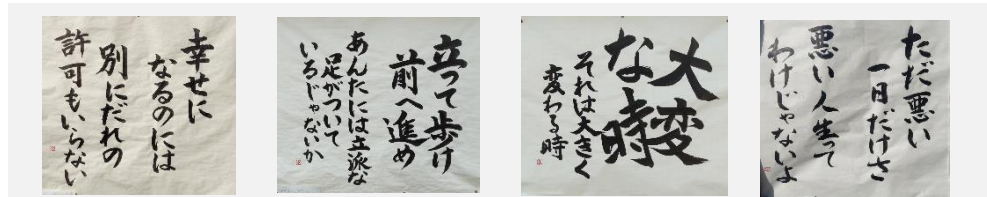 幸せに
なるのには
別にだれの
許可もいらない
立って歩け
前へ進め
あんたには立派な
足がついて
いるじゃないか
大変
な時
それは大きく
変わる時
ただ悪い
一日だけさ
悪い人生って
わけじゃないよ